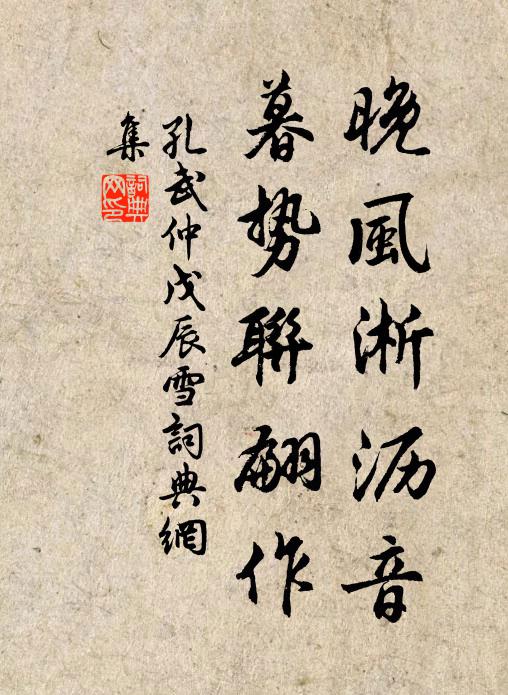 晚風淅沥音
暮勢聯翩作
孔武仲戊辰雪詞典網
集
詞典
网印